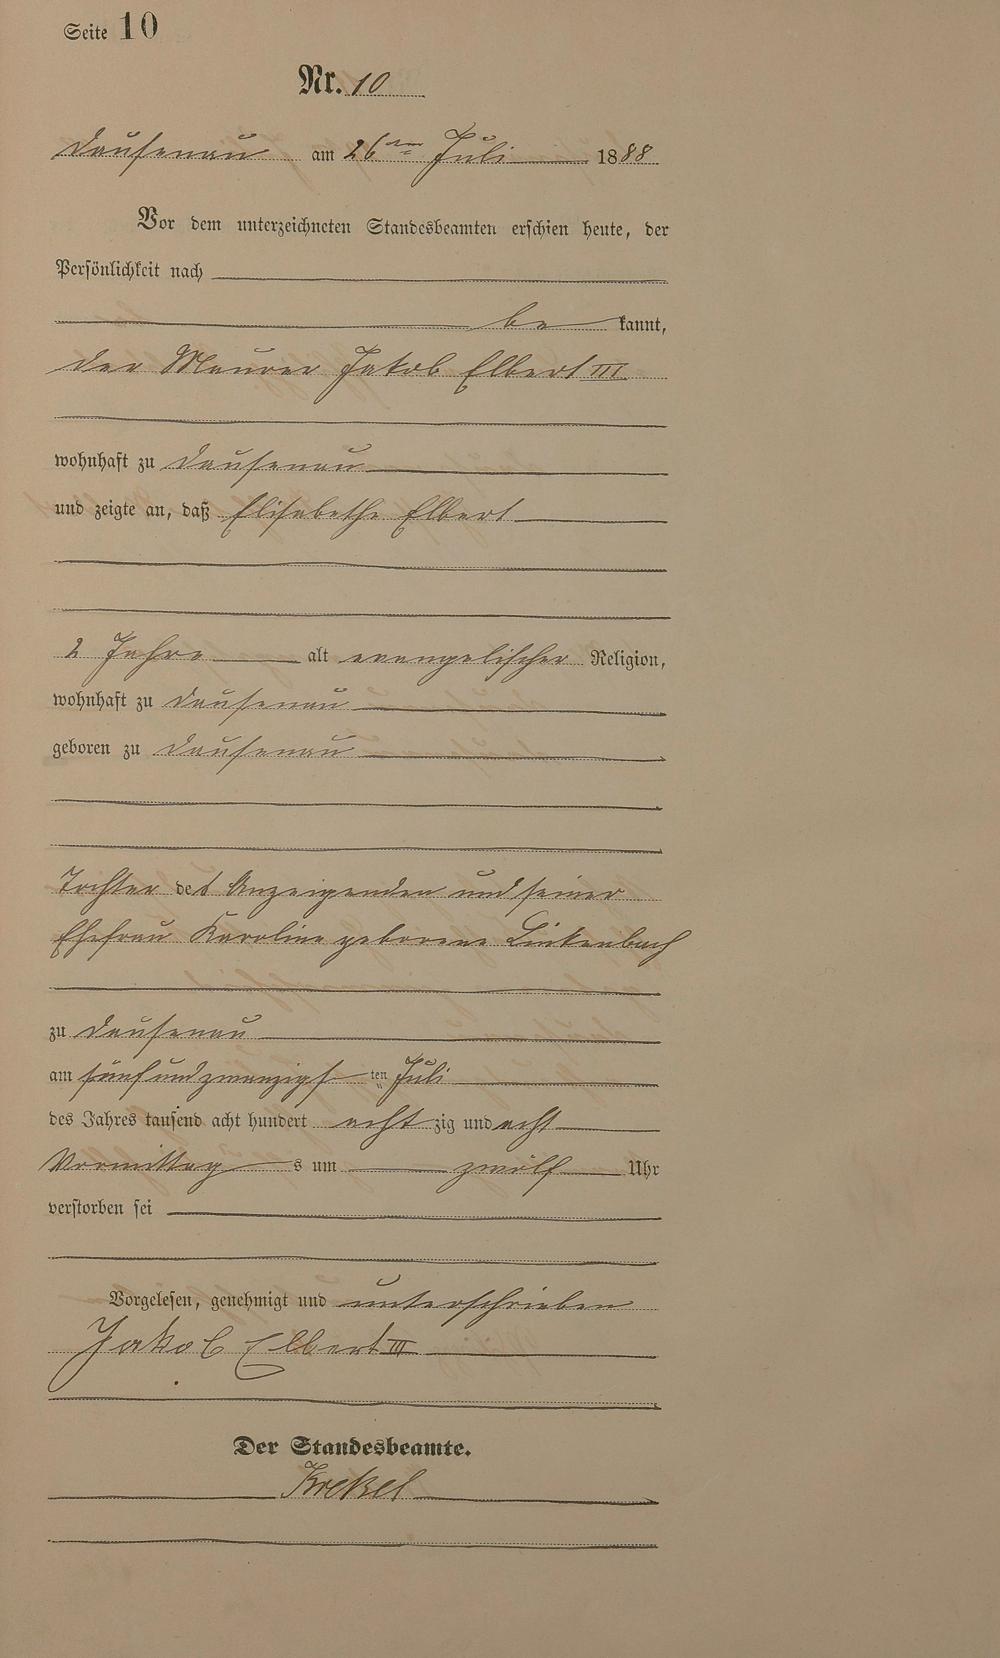 Seite 10
Nr. 10
Dausenau am 26ten Juli 1888
Vor dem unterzeichneten Standesbeamten erschien heute, der
Persönlichkeit nach
be kannt,
der Maurer Jakob Elbert III
wohnhaft zu Dausenau
und zeigte an, daß Elisabethe Elbert
2 Jahre alt evangelischer Religion,
wohnhaft zu Dausenau
geboren zu Dausenau
Tochter des Anzeigenden und seiner
Ehefrau Karoline geborene Linkenbach
zu Dausenau
am fünfundzwanzigs ten Juli
des Jahres tausend acht hundert acht zig und acht
Vormittag s um zwölf Uhr
verstorben sei
Vorgelesen, genehmigt und unterschrieben
Jakob Elbert III
Der Standesbeamte.
Krekel